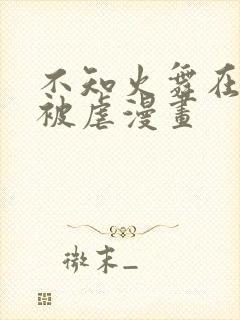 不知火舞在
被虐漫畫
微末_